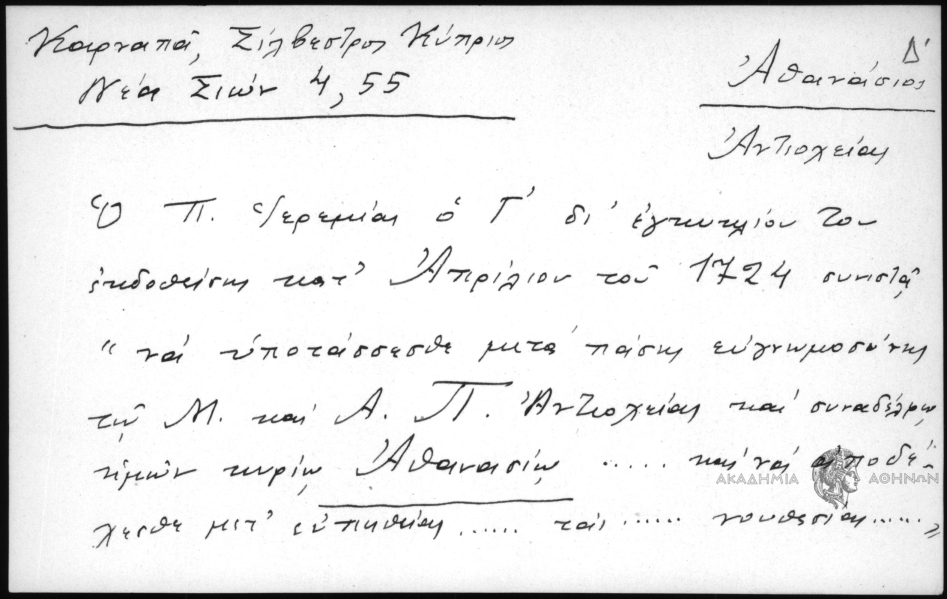 Καρναπᾶ, Σίλβεστρος Κύπριος
Νέα Σιών 4, 55
Δ'
Ἀθανάσιος
Ἀντιοχείας
Ὁ Π. Ἱερεμίας ὁ Γ' δι' ἐγκυκλίου του
ἐκδοθείσης κατ' Ἀπρίλιον τοῦ 1724 συνιστᾶ
"νά ὑποτάσσεσθε μετά πάσης εὐγνωμοσύνης
τῷ Μ. καί Α. Π. Ἀντιοχείας καί συναδέλφῳ
ἡμῶν κυρίῳ Ἀθανασίῳ ..... καί νά ἀποδέ-
χεσθε μετ' εὐπειθείας ...... τάς ...... νουθεσίας ......"
ΑΚΑΔΗΜΙΑ ΑΘΗΝΩΝ